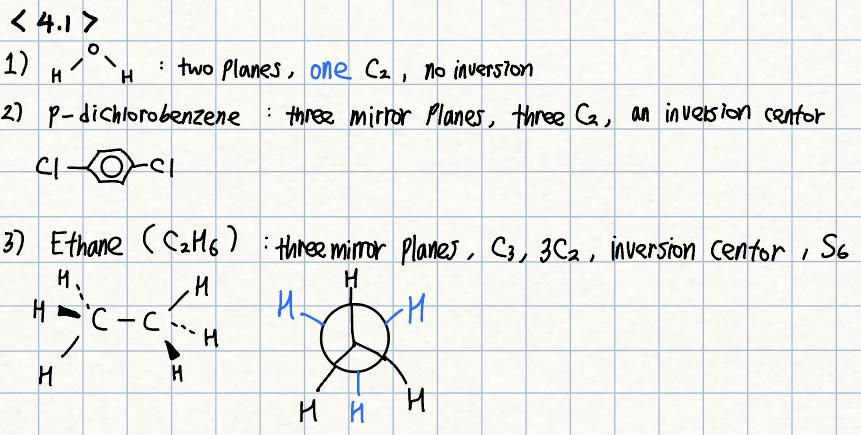 < 4.1 >
1) H O H : two planes, one C₂, no inversion
2) p-dichlorobenzene : three mirror Planes, three C₂, an inversion centor
Cl Cl
3) Ethane (C₂H₆) : three mirror planes, C₃, 3C₂, inversion centor, S₆
H H H
H C - C H H H
H H
H H H H